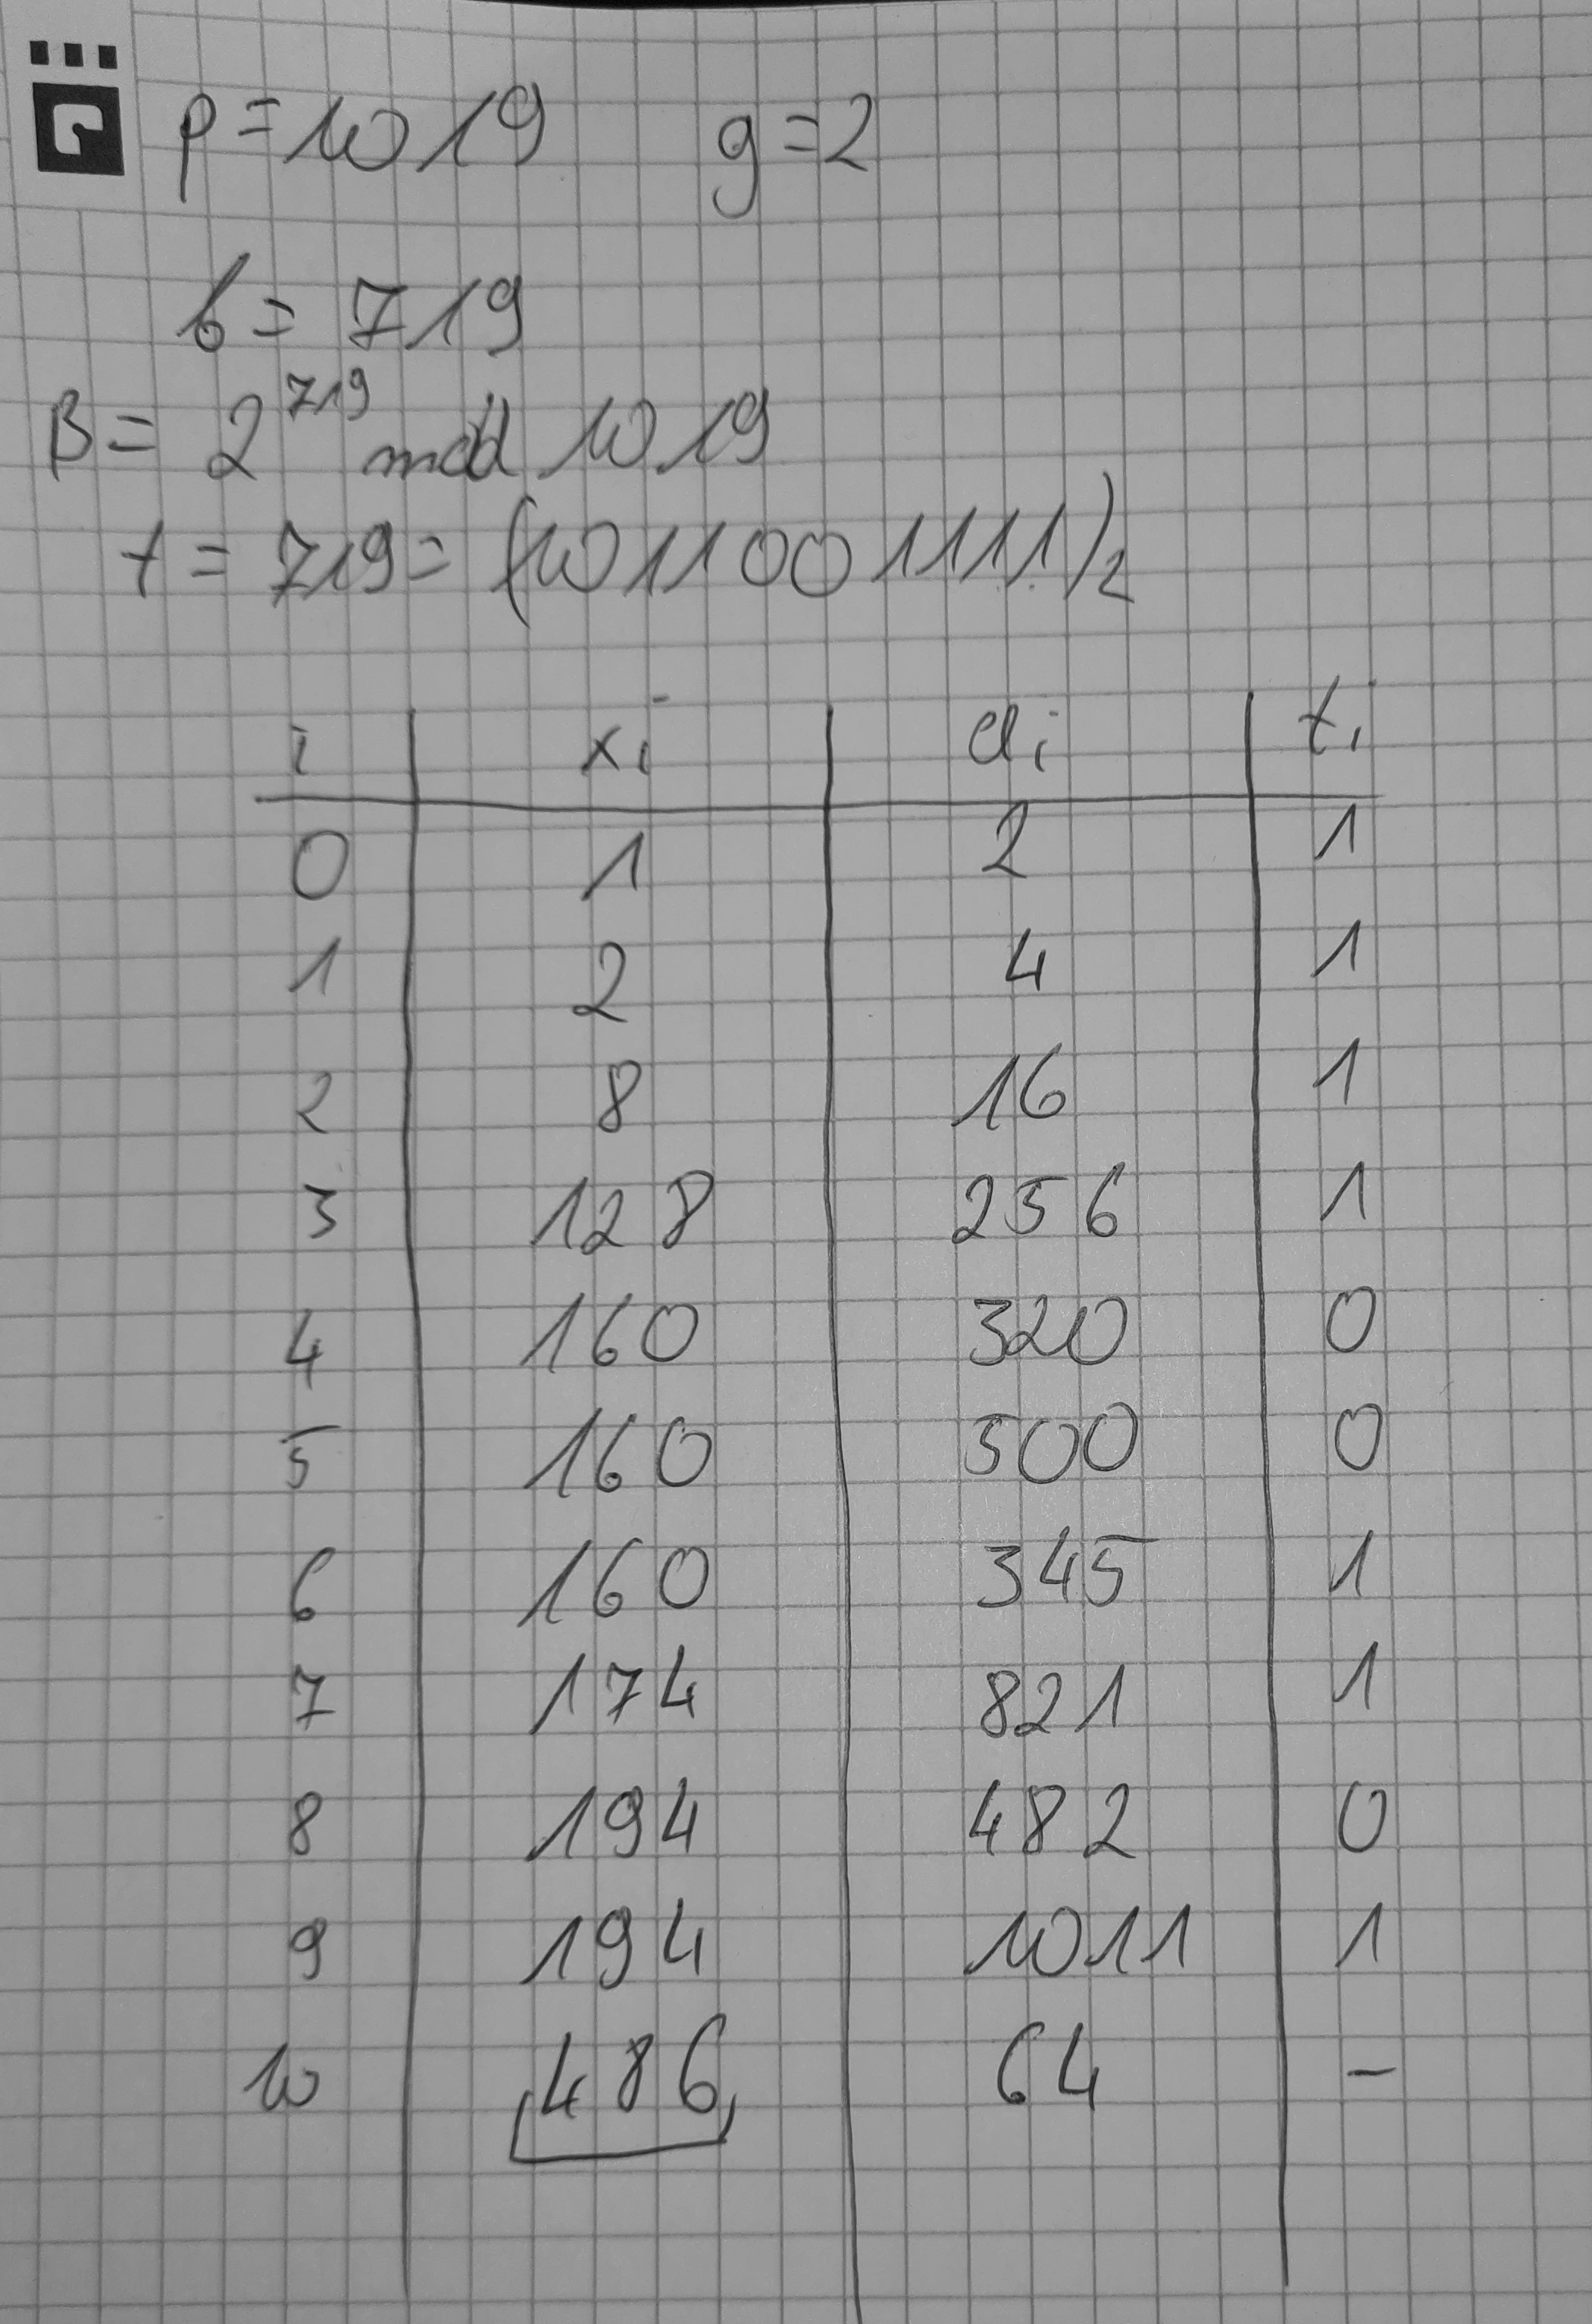 p = 1019 g = 2
b = 719
B = 2^719 mod 1019
t = 719 = (1011001111)2
i xi ai ti
0 1 2 1
1 2 4 1
2 8 16 1
3 128 256 1
4 160 320 0
5 160 500 0
6 160 345 1
7 174 821 1
8 194 482 0
9 194 1011 1
10 486 64 -